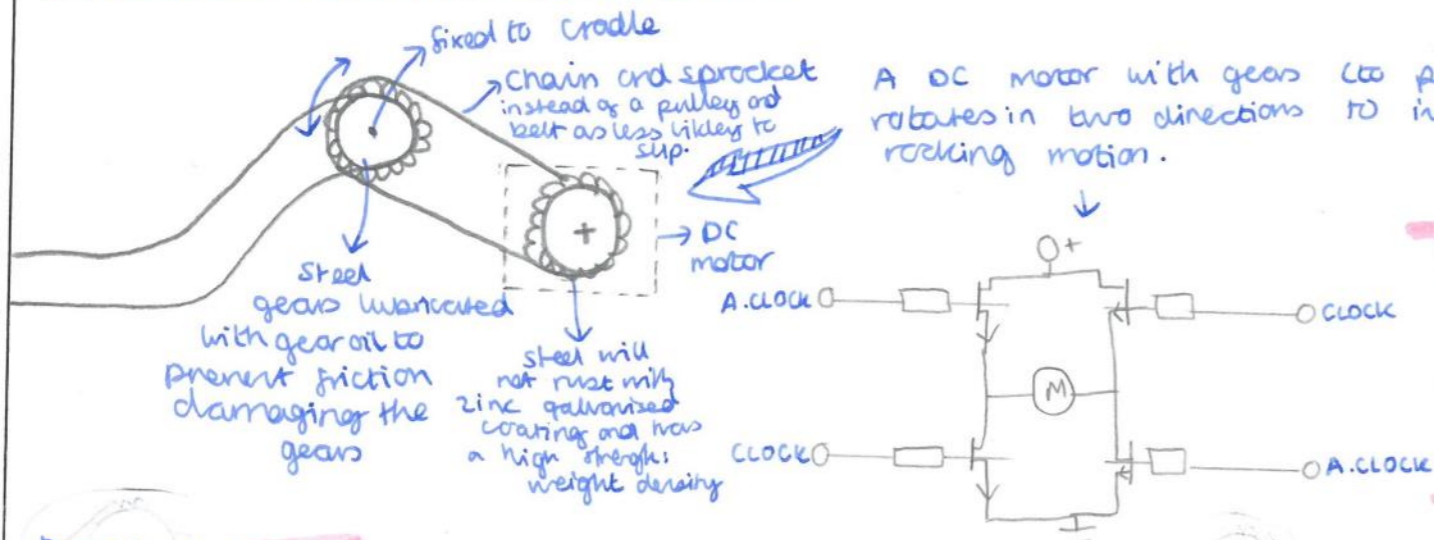 fixed to cradle
chain and sprocket
instead of a pulley and
belt as less likley to
slip.
A DC motor with gears (to
rotates in two directions to
rocking motion.
DC
motor
steel
gears lubricated
with gear oil to
prevent friction
damaging the
gears
steel will
not rust with
zinc galvanised
coating and has
a high strength:
weight density
+
A.CLOCK
CLOCK
M
CLOCK
A.CLOCK